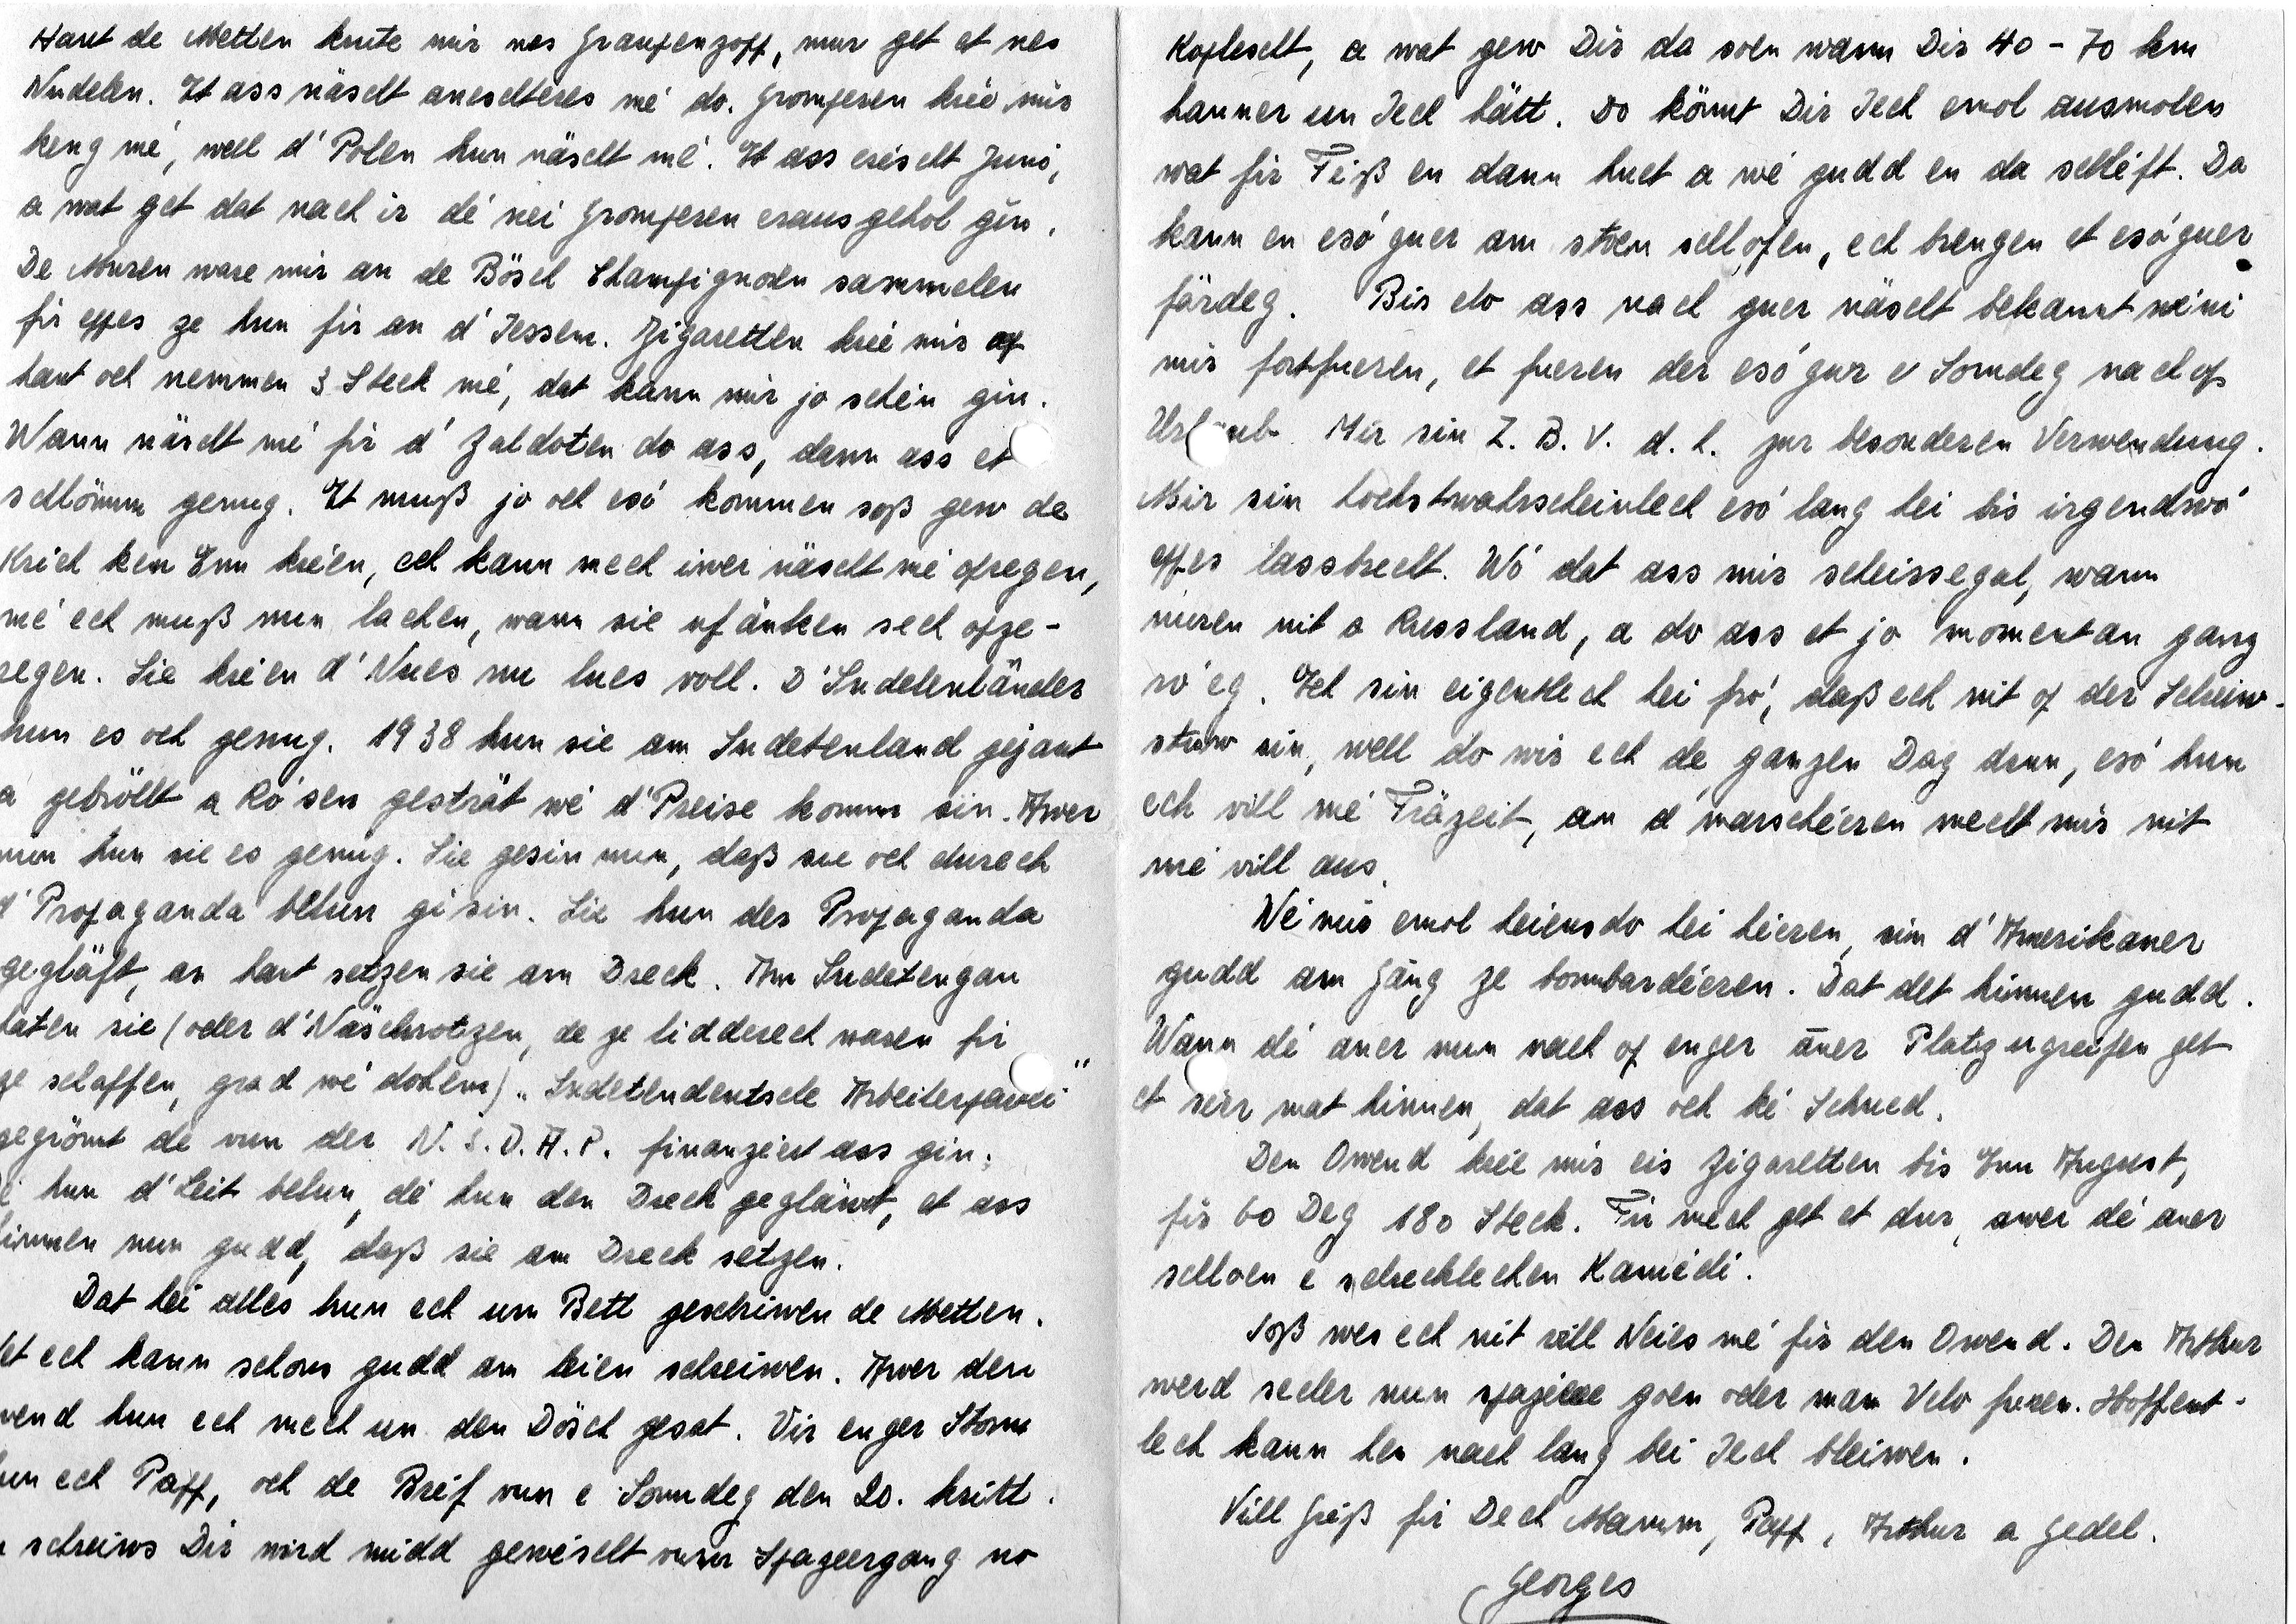 Haut de Metten krute mir nes Graupenzopp, mur get et nes
Nudelen. Et ass näscht aneschteres mé do. Gromperen krée mir
keng mé, well d'Polen hun näscht mé. Et ass eréscht Juni,
a wat get dat nach ir dé nei Gromperen erausgehol gin.
De Muren ware mir an de Bösch Champignonen sammelen
fir eppes ze hun fir an d'Iessen. Zigaretten krée mir op
haut och nemmen 3 Steck mé, dat kann mir jo schéin gin.
Wann näscht mé fir d'Zaldoten do ass, dann ass et
schlömm genug. Et muß jo och esó kommen soß gew de
Krich ken Enn kréen, ech kann mech iwer näscht mé opregen,
mé ech muß nun lachen, wann sie ufänken sech opze-
regen. Sie kréen d'Nues nu lues voll. D'Sudetenländer
hun es och genug. 1938 hun sie am Sudetenland gejaut
a gebröllt a Ro'sen gesträt wé d'Preise komm sin. Awer
nun hun sie es genug. Sie gesin nun, daß sie och durech
d'Propaganda behun gi sin. Sie hun der Propaganda
gegläft, an haut setzen sie am Dreck. Am Sudetengau
haten sie (oder d'Näschnotzen, de ze lidderech waren fir
ze schaffen, grad wé doheem) „Sudetendeutsche Arbeiterpartei"
gegrönnt dé vun der N.S.D.A.P. finanzéert ass gin.
Dé hun d'Leit behun, dé hun den Dreck gegläwt, et ass
hinnen nun gudd, daß sie am Dreck setzen.
Dat hei alles hun ech um Bett geschriwen de Metten.
Et ech kann schons gudd am leien schreiwen. Awer den
Owend hun ech mech un den Dösch gesat. Vir enger Stonn
hun ech Papp, och de Bréf vum e Sonndeg den 20. kritt.
schreiws Dir wird midd gewéscht vum Spazeergang no
Koplescht, a wat gew Dir da soen wann Dir 40 - 70 km
hanner un Iech hätt. Do könnt Dir Iech emol ausmolen
wat fir Féiß en dann huet a wé gudd en da schléft. Da
kann en esóguer am stoen schlofen, ech brengen et esóguer
färdeg. Bis elo ass nach guer näscht bekannt wéini
mir fortfueren, et fueren der esóguer e Sonndeg nach op
Urlaub. Mir sin Z.B.V. d.h. zur besonderen Verwendung.
Mir sin höchstwahrscheinlech esó lang hei bis irgendwó
eppes lassbrecht. Wó dat ass mir scheissegal, wann
nuren nit a Russland, a do ass et jo momentan ganz
ro'eg. Ech sin eigentlech hei fró, daß ech nit op der Schreiw-
stuw sin, well do wir ech de ganzen Dag dran, esó hun
ech vill mé Fräzeit, an d'marschéeren mecht mir nit
mé vill aus.
Wéi mir emol heiensdo hei héieren, sin d'Amerikaner
gudd am Gäng ze bombardéeren. Dat det hinnen gudd.
Wann dé aner nun nach op enger aner Platz ugreifen get
et séir mat hinnen, dat ass och ké Schued.
Den Owend krée mir eis Zigaretten bis Enn August,
fir 60 Deg 180 Steck. Fir mech get et dur, awer dé aner
schloen e schrecklechen Kamédi.
Soß wes ech nit vill Neies mé fir den Owend. Den Arthur
werd secher nun spazéere goen oder mam Velo fueren. Hoffent-
lech kann hen nach lang bei Iech bleiwen.
Vill Gréiß fir Dech Mamm, Papp, Arthur a Gedel.
Georges